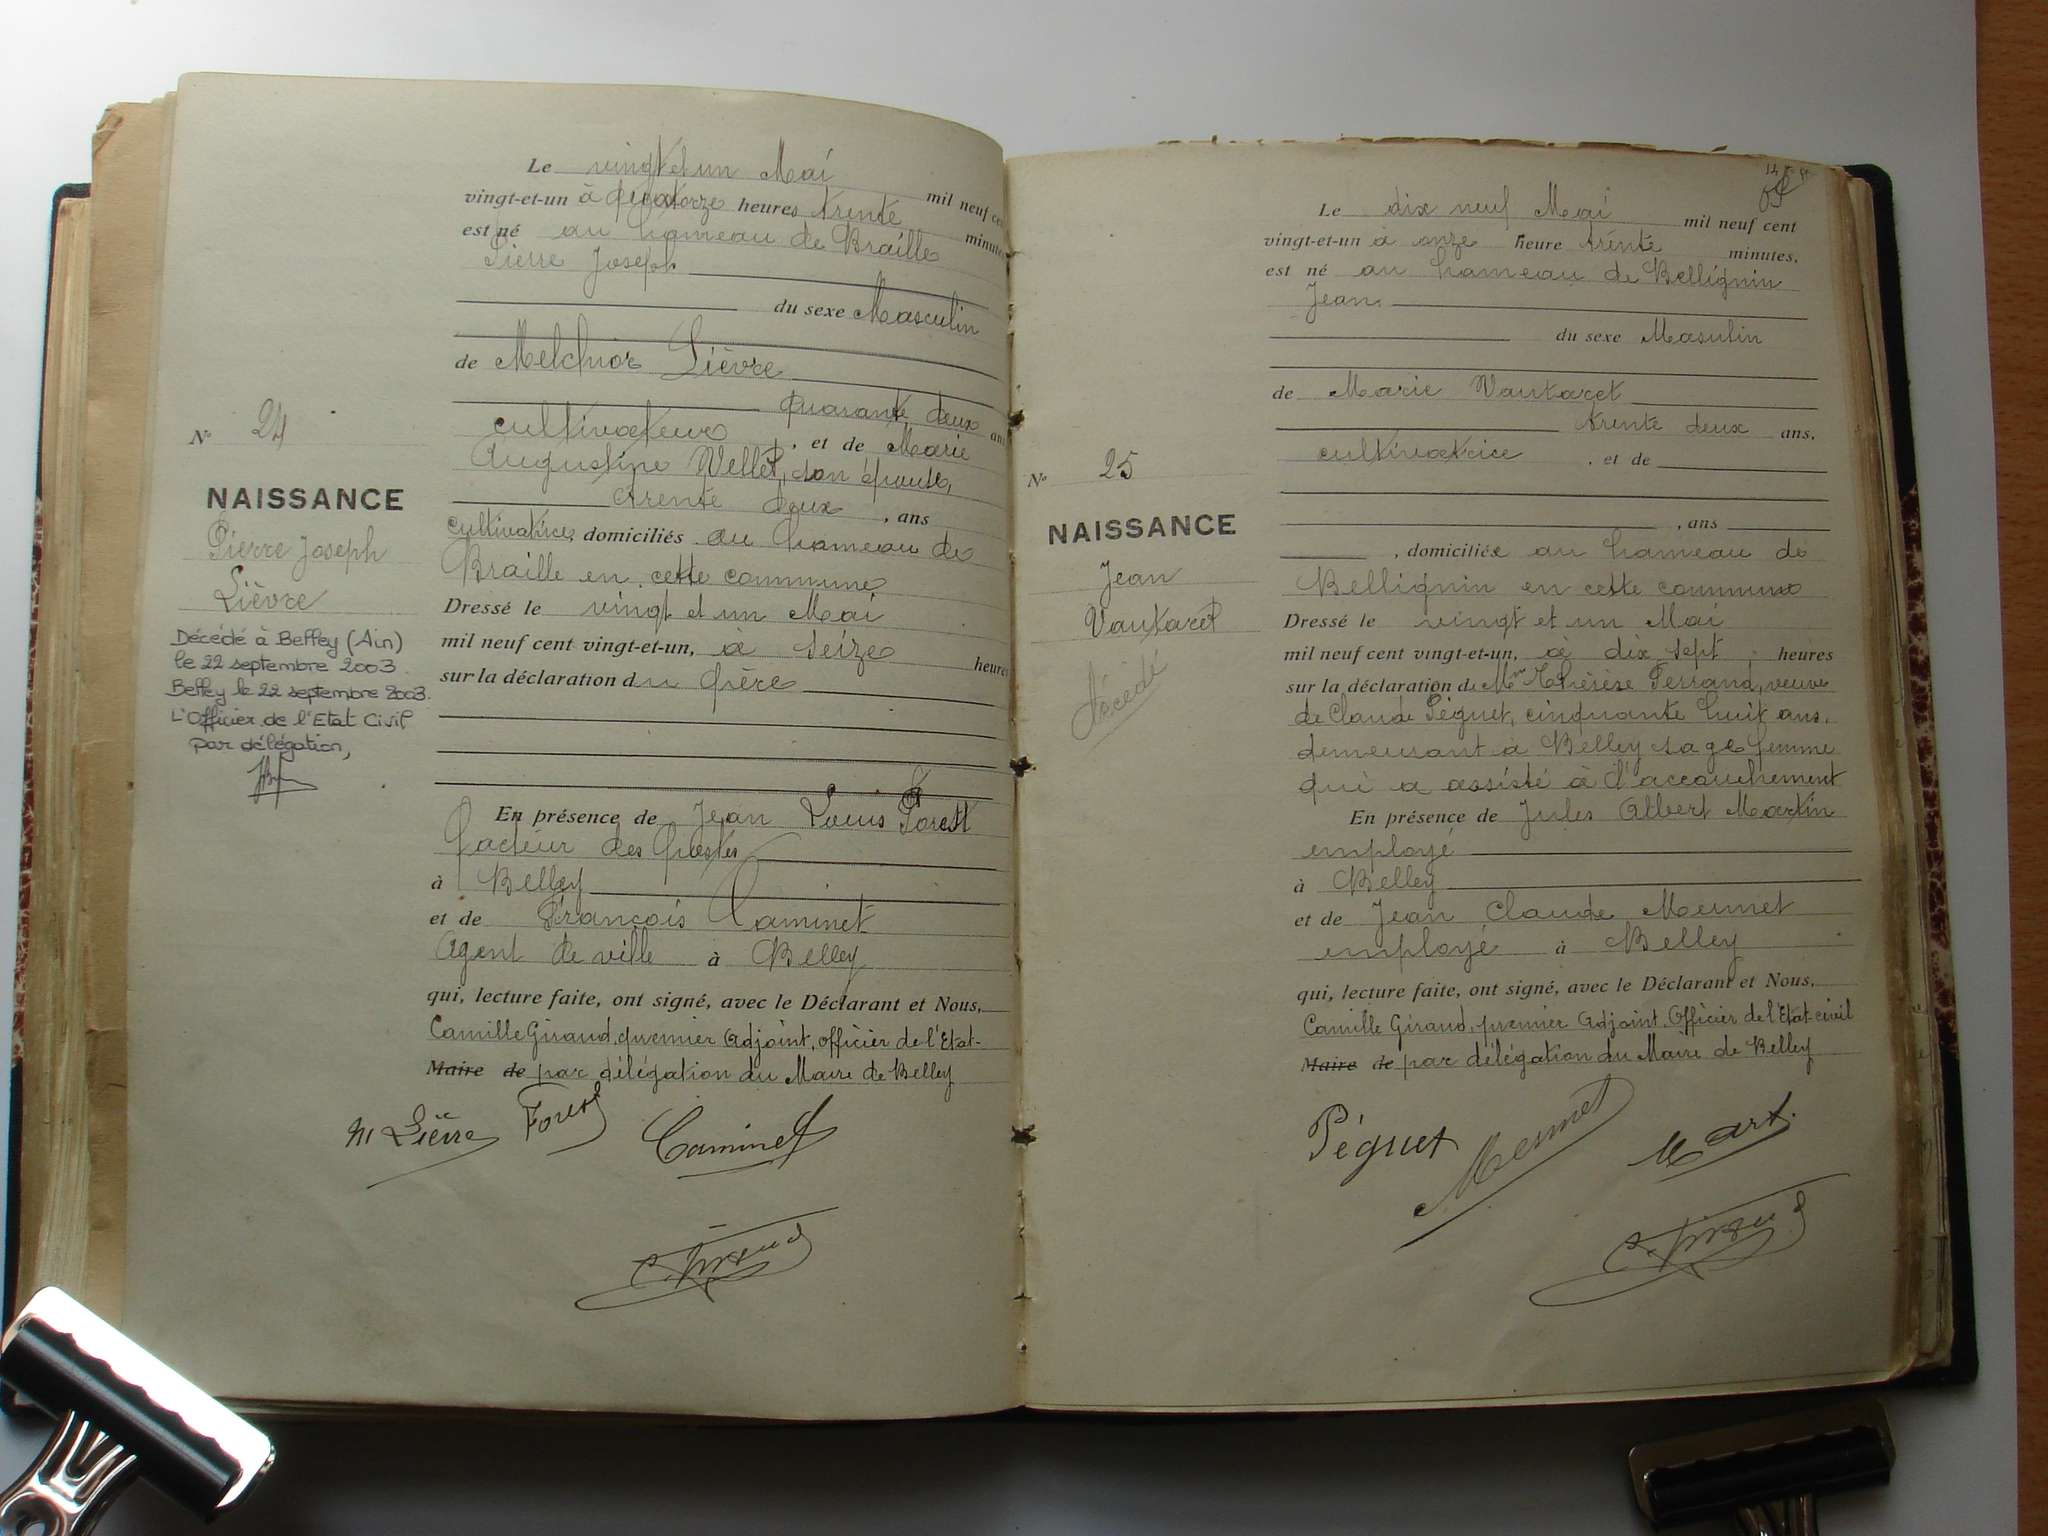 Le vingt et un Mai mil neuf cent
vingt-et-un à quatorze heures trente minutes
est né au hameau de Braille
Pierre Joseph
du sexe Masculin
de Melchior Lièvre
quarante deux ans
cultivateur, et de Marie
Augustine Vellet, son épouse,
trente deux, ans
cultivatrice, domiciliés au hameau de
Braille en cette commune
Dressé le vingt et un Mai
mil neuf cent vingt-et-un, à seize heures
sur la déclaration du père
En présence de Jean Louis Forest
facteur des Postes
à Belley
et de François Caminet
Agent de ville à Belley
qui, lecture faite, ont signé, avec le Déclarant et Nous,
Camille Giraud, premier Adjoint, officier de l'Etat-
Maire de par délégation du Maire de Belley
M Lièvre Forest Caminet
C. Giraud
N° 24
NAISSANCE
Pierre Joseph
Lièvre
Décédé à Belley (Ain)
le 22 septembre 2003.
Belley le 22 septembre 2003.
L'Officier de l'Etat Civil
par délégation,
Le dix neuf Mai mil neuf cent
vingt-et-un à onze heure trente minutes,
est né au hameau de Bellignin
Jean
du sexe Masulin
de Marie Vautaret
trente deux ans,
cultivatrice, et de
, ans
, domiciliée au hameau de
Bellignin en cette commune
Dressé le vingt et un Mai
mil neuf cent vingt-et-un, à dix sept heures
sur la déclaration de Mme Thérèse Ferrand, veuve
de Claude Péguet, cinquante huit ans,
demeurant à Belley sage femme
qui a assisté à l'accouchement
En présence de Jules Albert Martin
employé
à Belley
et de Jean Claude Meunet
employé à Belley
qui, lecture faite, ont signé, avec le Déclarant et Nous,
Camille Giraud, premier Adjoint, Officier de l'Etat-civil
Maire de par délégation du Maire de Belley
Péguet Meunet Mart.
C. Giraud
N° 25
NAISSANCE
Jean
Vautaret
Décédé